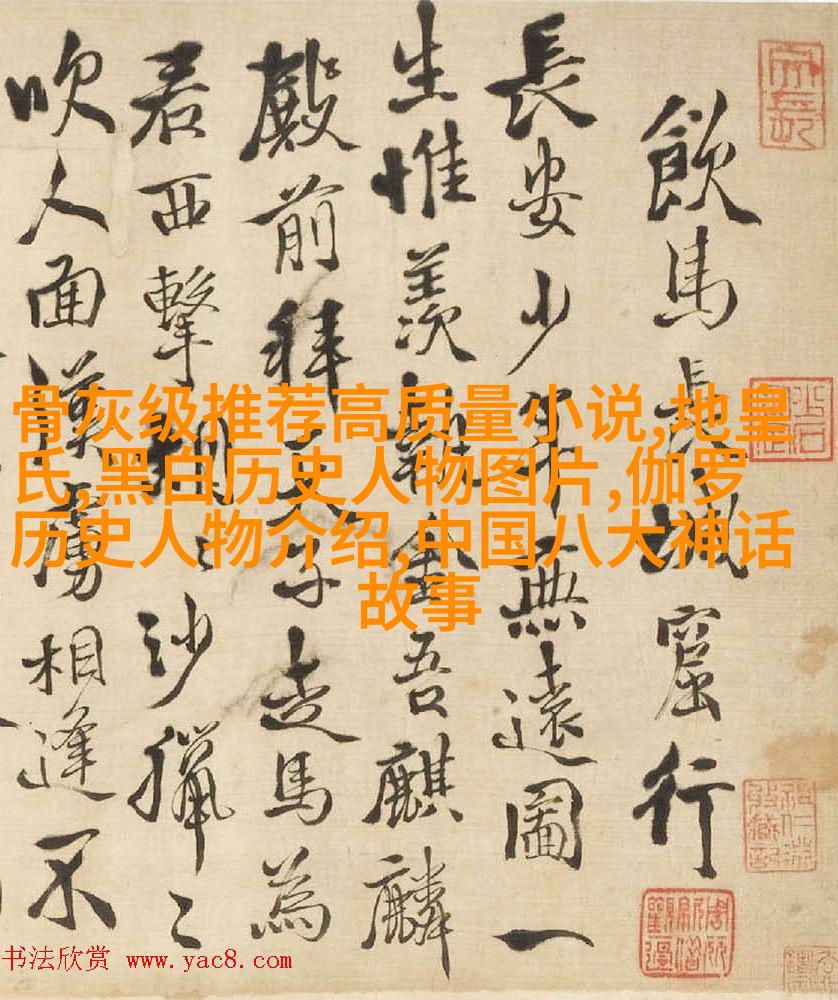 飲馬長城窟行
長安少年無遠圖一
生惟羨執金吾麒麟
殿前拜天子走馬為
君西擊胡〻沙獵〻
吹人面漢虜相逢不
骨灰级推荐高质量小说,地皇
氏,黑白历史人物图片,伽罗
历史人物介绍,中国八大神话
故事
书法欣赏 www.yac8.com